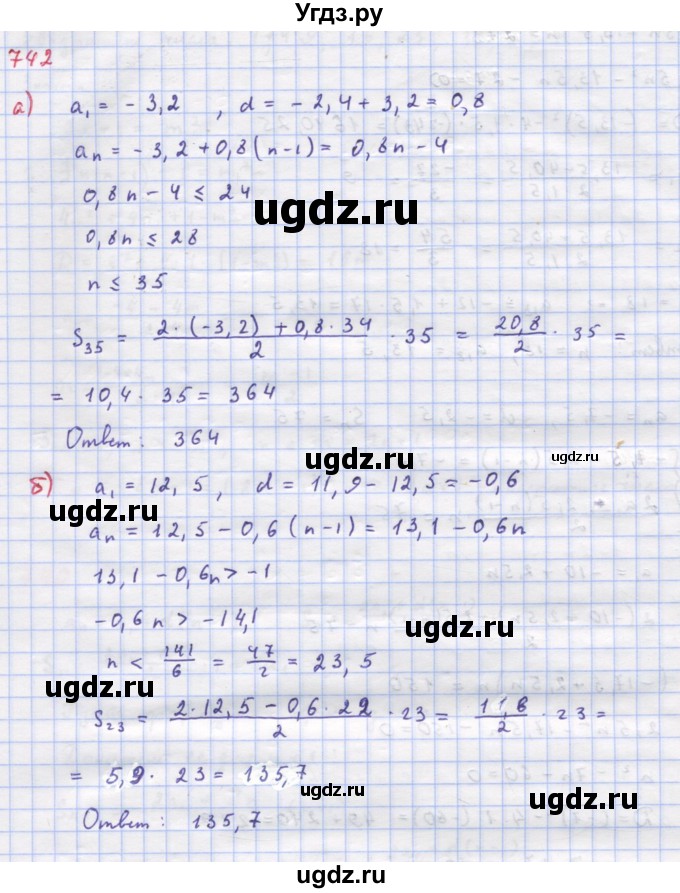 Угдз.ру
742
а) a₁ = - 3,2 , d = - 2,4 + 3,2 = 0,8
aₙ = - 3,2 + 0,8 (n-1) = 0,8n - 4
0,8n - 4 ≤ 24
ugdz.ru
0,8n ≤ 28
n ≤ 35
S₃₅ = (2·(-3,2) + 0,8·34)/2 · 35 = 20,8/2 · 35 =
= 10,4 · 35 = 364
Ответ: 364
ugdz.ru
б) a₁ = 12,5, d = 11,9 - 12,5 = -0,6
ugdz.ru
aₙ = 12,5 - 0,6 (n-1) = 13,1 - 0,6n
13,1 - 0,6n > -1
-0,6n > -14,1
ugdz.ru
n < 141/6 = 47/2 = 23,5
ugdz.ru
S₂₃ = (2·12,5 - 0,6·22)/2 · 23 = 11,8/2 · 23 =
= 5,9 · 23 = 135,7
ugdz.ru
Ответ: 135,7
ugdz.ru
ugdz.ru